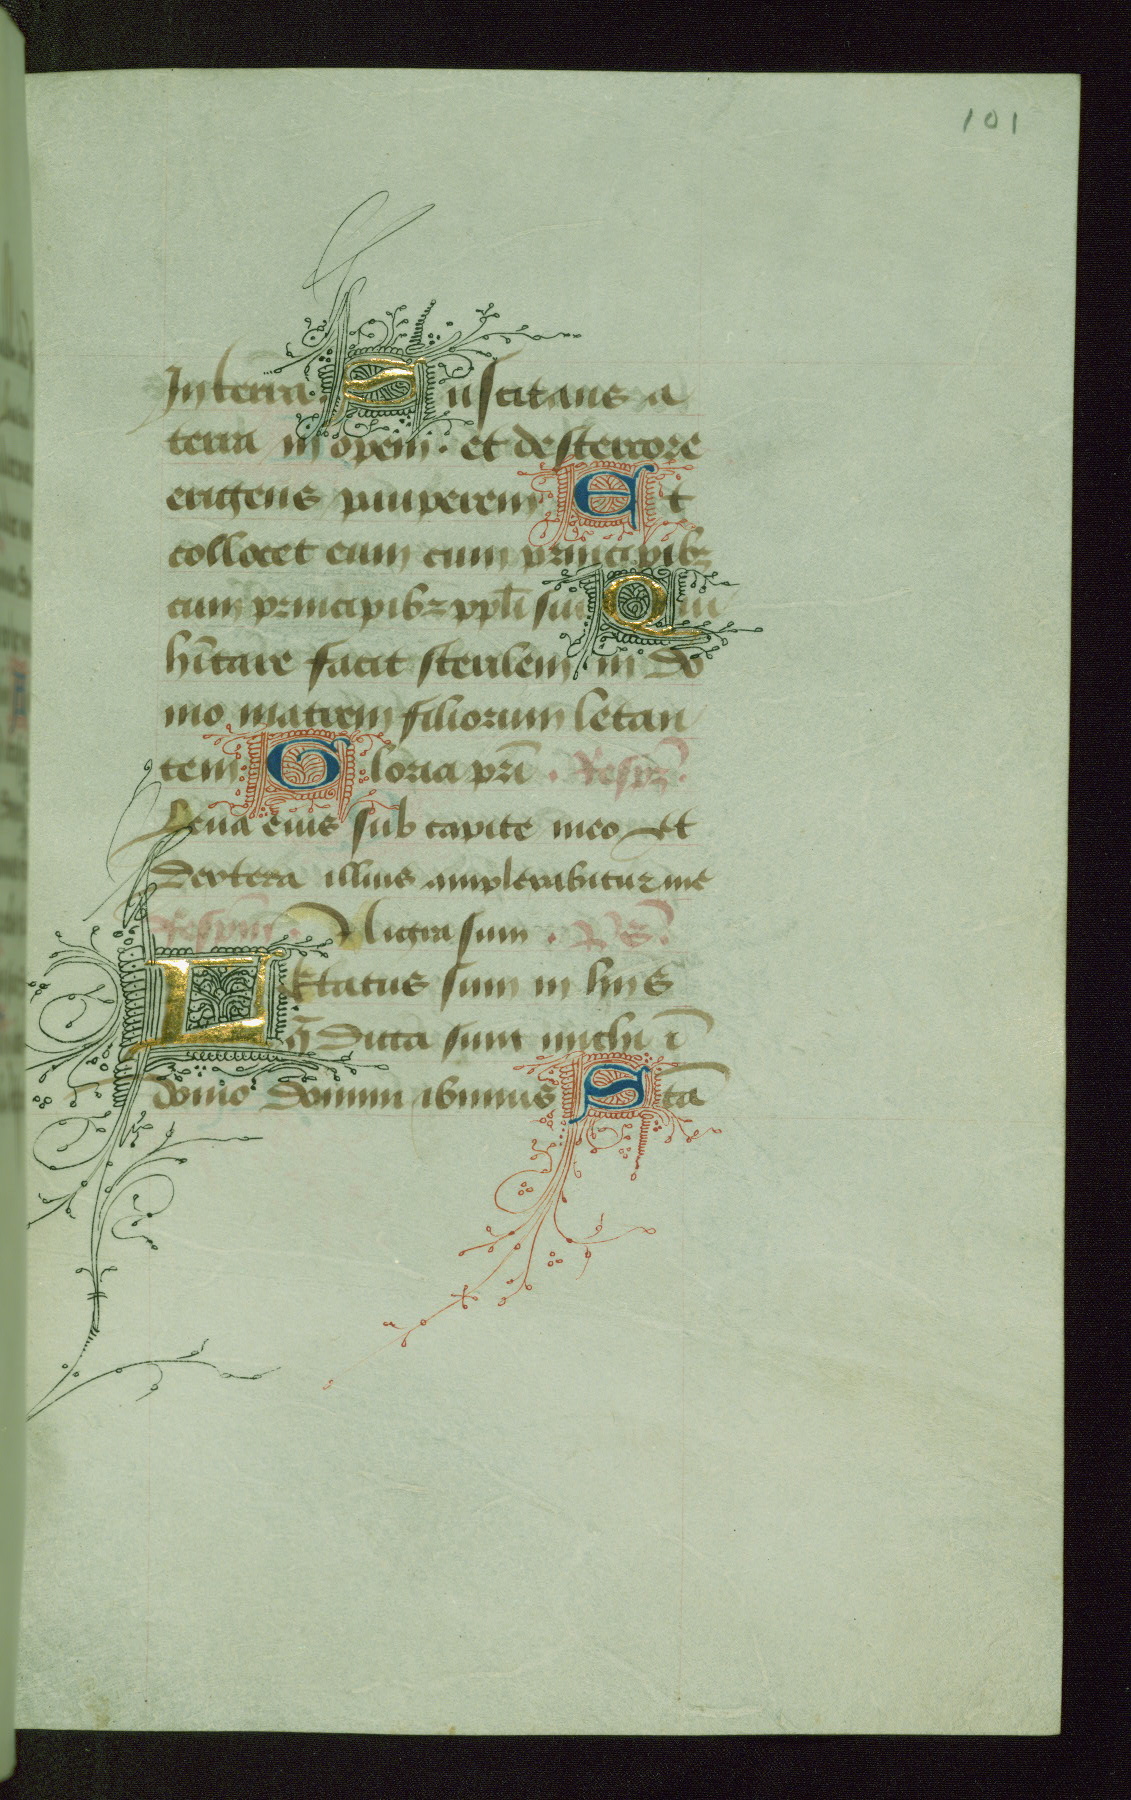 101
In terra. Suscitans a
terra inopem. et de stercore
erigens pauperem Et
collocet eum cum principibꝫ
cum principibꝫ ppl̄i sui Qui
hītare facit sterilem in do
mo matrem filiorum letan
tem Gloria pri̅. Respꝫ.
Leua eius sub capite meo et
dextera illius amplexabitur me
Nigra sum. p̄s.
Letatus sum in hiis
q̄ dicta sunt michi ī
domo domini ibimus Stā